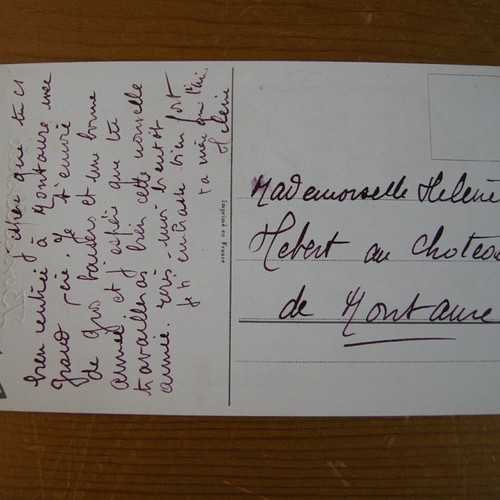 J'espère que tu es
bien rentrée à Montaure avec
Grand Mère. Je t'envoie
de gros baisers et une bonne
année et j'espère que tu
travailleras bien cette nouvelle
année. écris-moi bientôt
je t'embrasse bien fort
ta mère qui t'aime
Hélène
Imprimé en France
Mademoiselle Helene
Hebert au Chateau
de Montaure